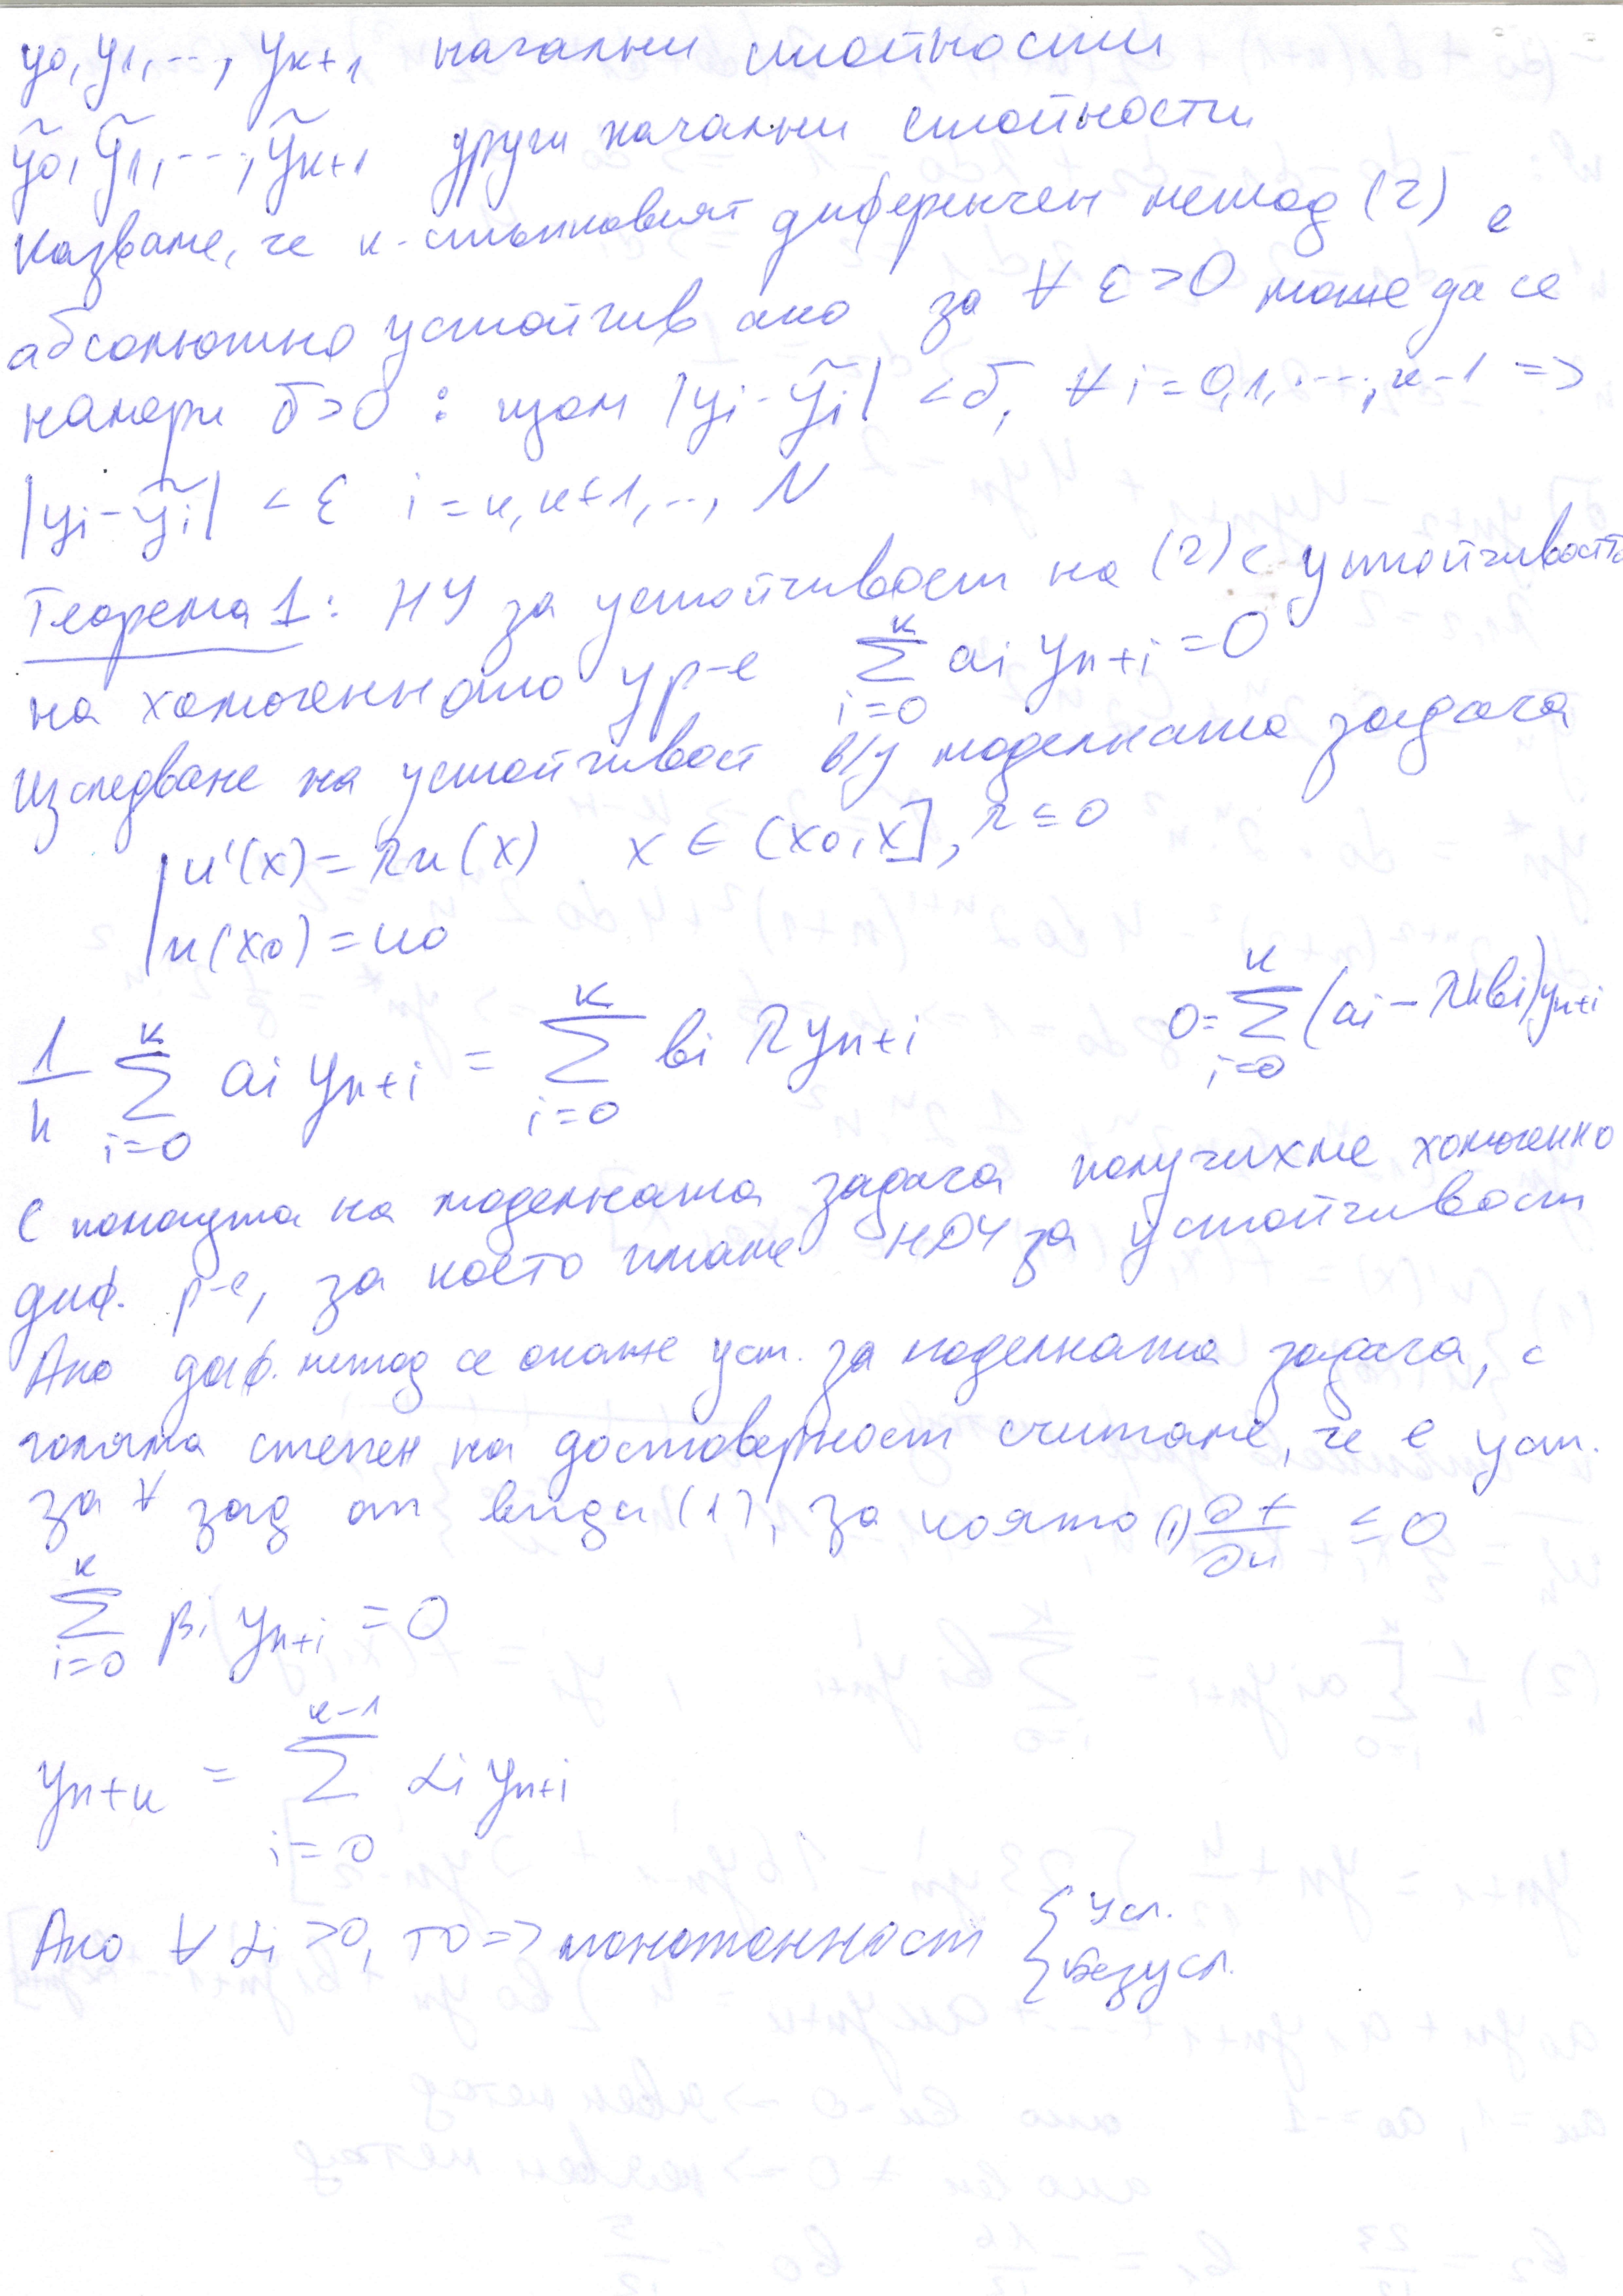 y₀, y₁, ..., yₖ₊₁ начални стойности
ỹ₀, ỹ₁, ..., ỹₖ₊₁ други начални стойности
Казваме, че к-стъпковият диференчен метод (2) е
абсолютно устойчив ако за ∀ ε > 0 може да се
намери δ > 0 : щом |yᵢ - ỹᵢ| < δ, ∀ i = 0, 1, ..., k-1 =>
|yᵢ - ỹᵢ| < ε i = k, k+1, .., N
Теорема 1: НУ за устойчивост на (2) е устойчивостта
на хомогенното ур-е ∑_{i=0}^{k} aᵢ yₙ₊ᵢ = 0
Изследване на устойчивост в/у моделната задача
| u'(x) = λu(x) x ∈ (x₀, X], λ ≤ 0
| u(x₀) = u₀
1/h ∑_{i=0}^{k} aᵢ yₙ₊ᵢ = ∑_{i=0}^{k} bᵢ λ yₙ₊ᵢ 0 = ∑_{i=0}^{k} (aᵢ - λhbᵢ) yₙ₊ᵢ
С помощта на моделната задача получихме хомогенно
диф. р-е, за което имаме НДУ за устойчивост
Ако диф. метод се окаже уст. за моделната задача, с
голяма степен на достоверност считаме, че е уст.
за ∀ зад от вида (1), за която (1) ∂f/∂u ≤ 0
∑_{i=0}^{k} βᵢ yₙ₊ᵢ = 0
yₙ₊ₖ = ∑_{i=0}^{k-1} αᵢ yₙ₊ᵢ
Ако ∀ αᵢ > 0, то => монотонност { усл.
{ безусл.